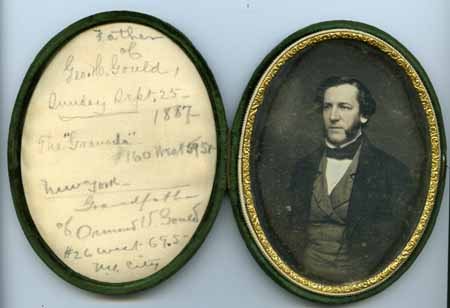 Father
of
Geo. H. Gould,
Sunday Sept, 25-
1887-
The "Granada"
#160 West 59 St
New York-
Grandfath-
of Ormond V Gould
#26 West 69. S-
N.Y. City